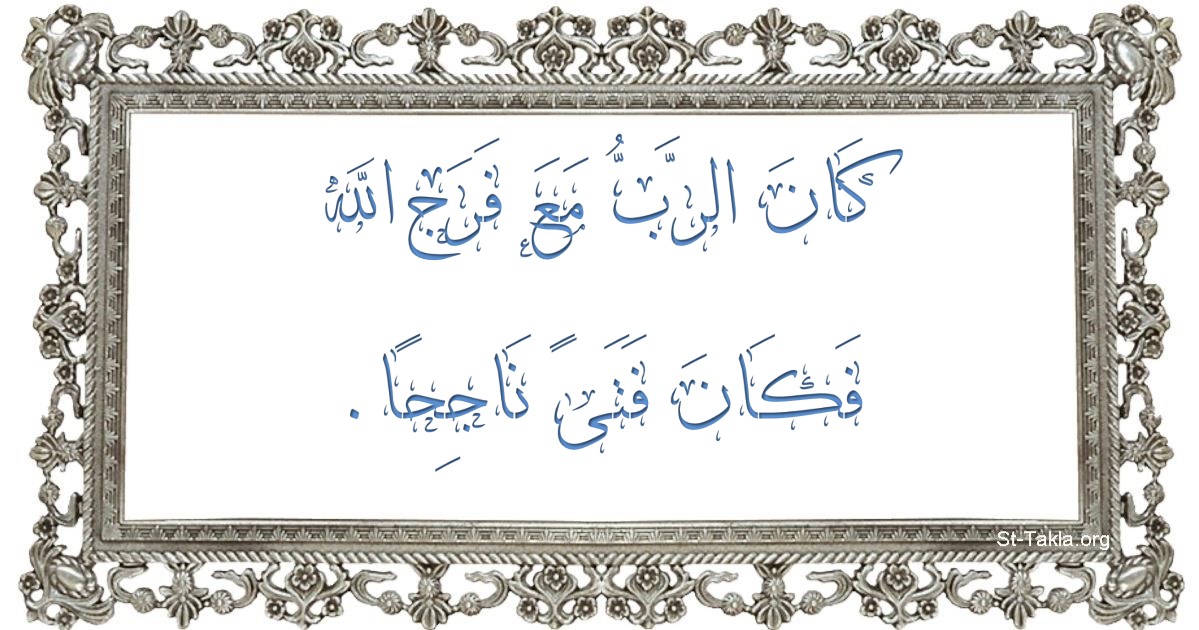 كَانَ الرَّبُّ مَعَ فَرَجِ اللَّهِ
فَكَانَ فَتَىً نَاجِحًا .
St-Takla.org